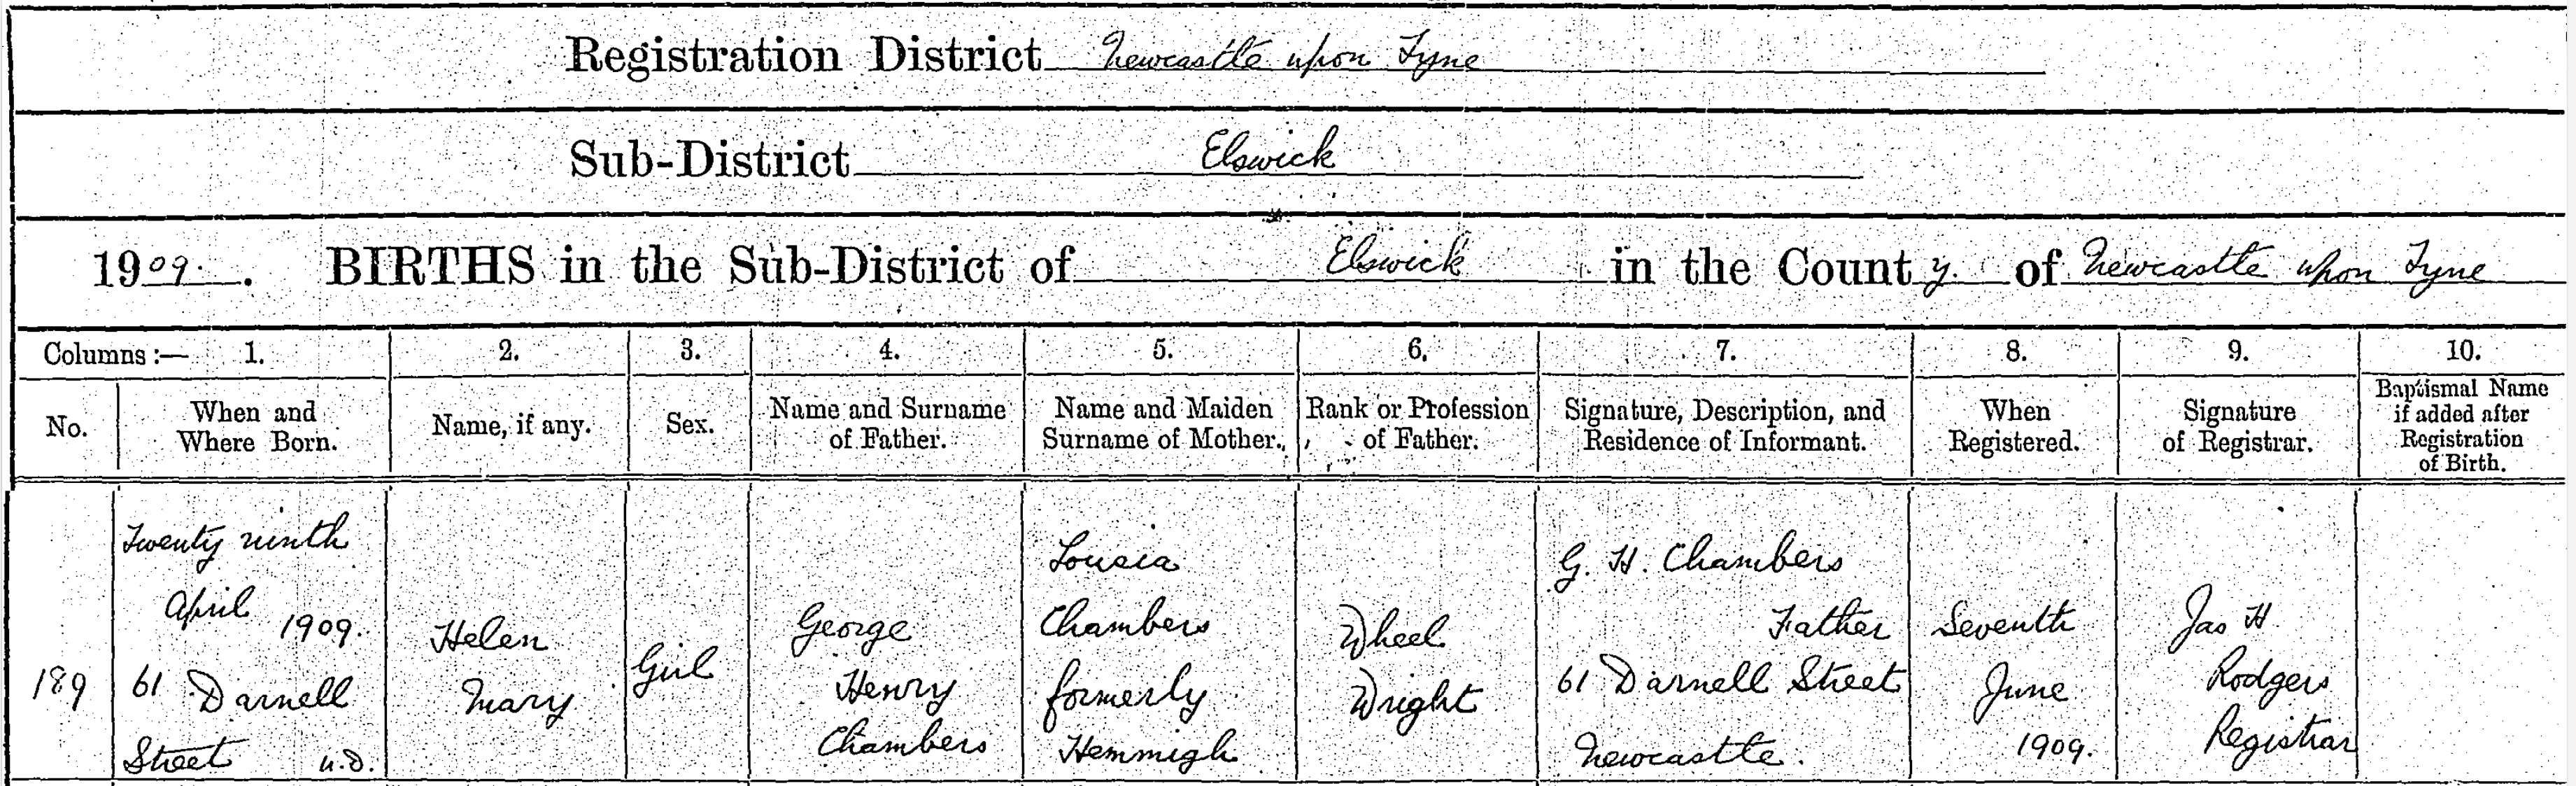 Registration District Newcastle upon Tyne
Sub-District Elswick
1909. BIRTHS in the Sub-District of Elswick in the County of Newcastle upon Tyne
Columns :— 1. 2. 3. 4. 5. 6. 7. 8. 9. 10.
No.
When and
Where Born.
Name, if any.
Sex.
Name and Surname
of Father.
Name and Maiden
Surname of Mother.
Rank or Profession
of Father.
Signature, Description, and
Residence of Informant.
When
Registered.
Signature
of Registrar.
Baptismal Name
if added after
Registration
of Birth.
189
Twenty ninth
April 1909.
61 Darnell
Street u.d.
Helen
Mary
Girl
George
Henry
Chambers
Lousia
Chambers
formerly
Hemmigh
Wheel
Wright
G. H. Chambers
Father
61 Darnell Street
Newcastle.
Seventh
June
1909.
Jas H
Rodgers
Registrar